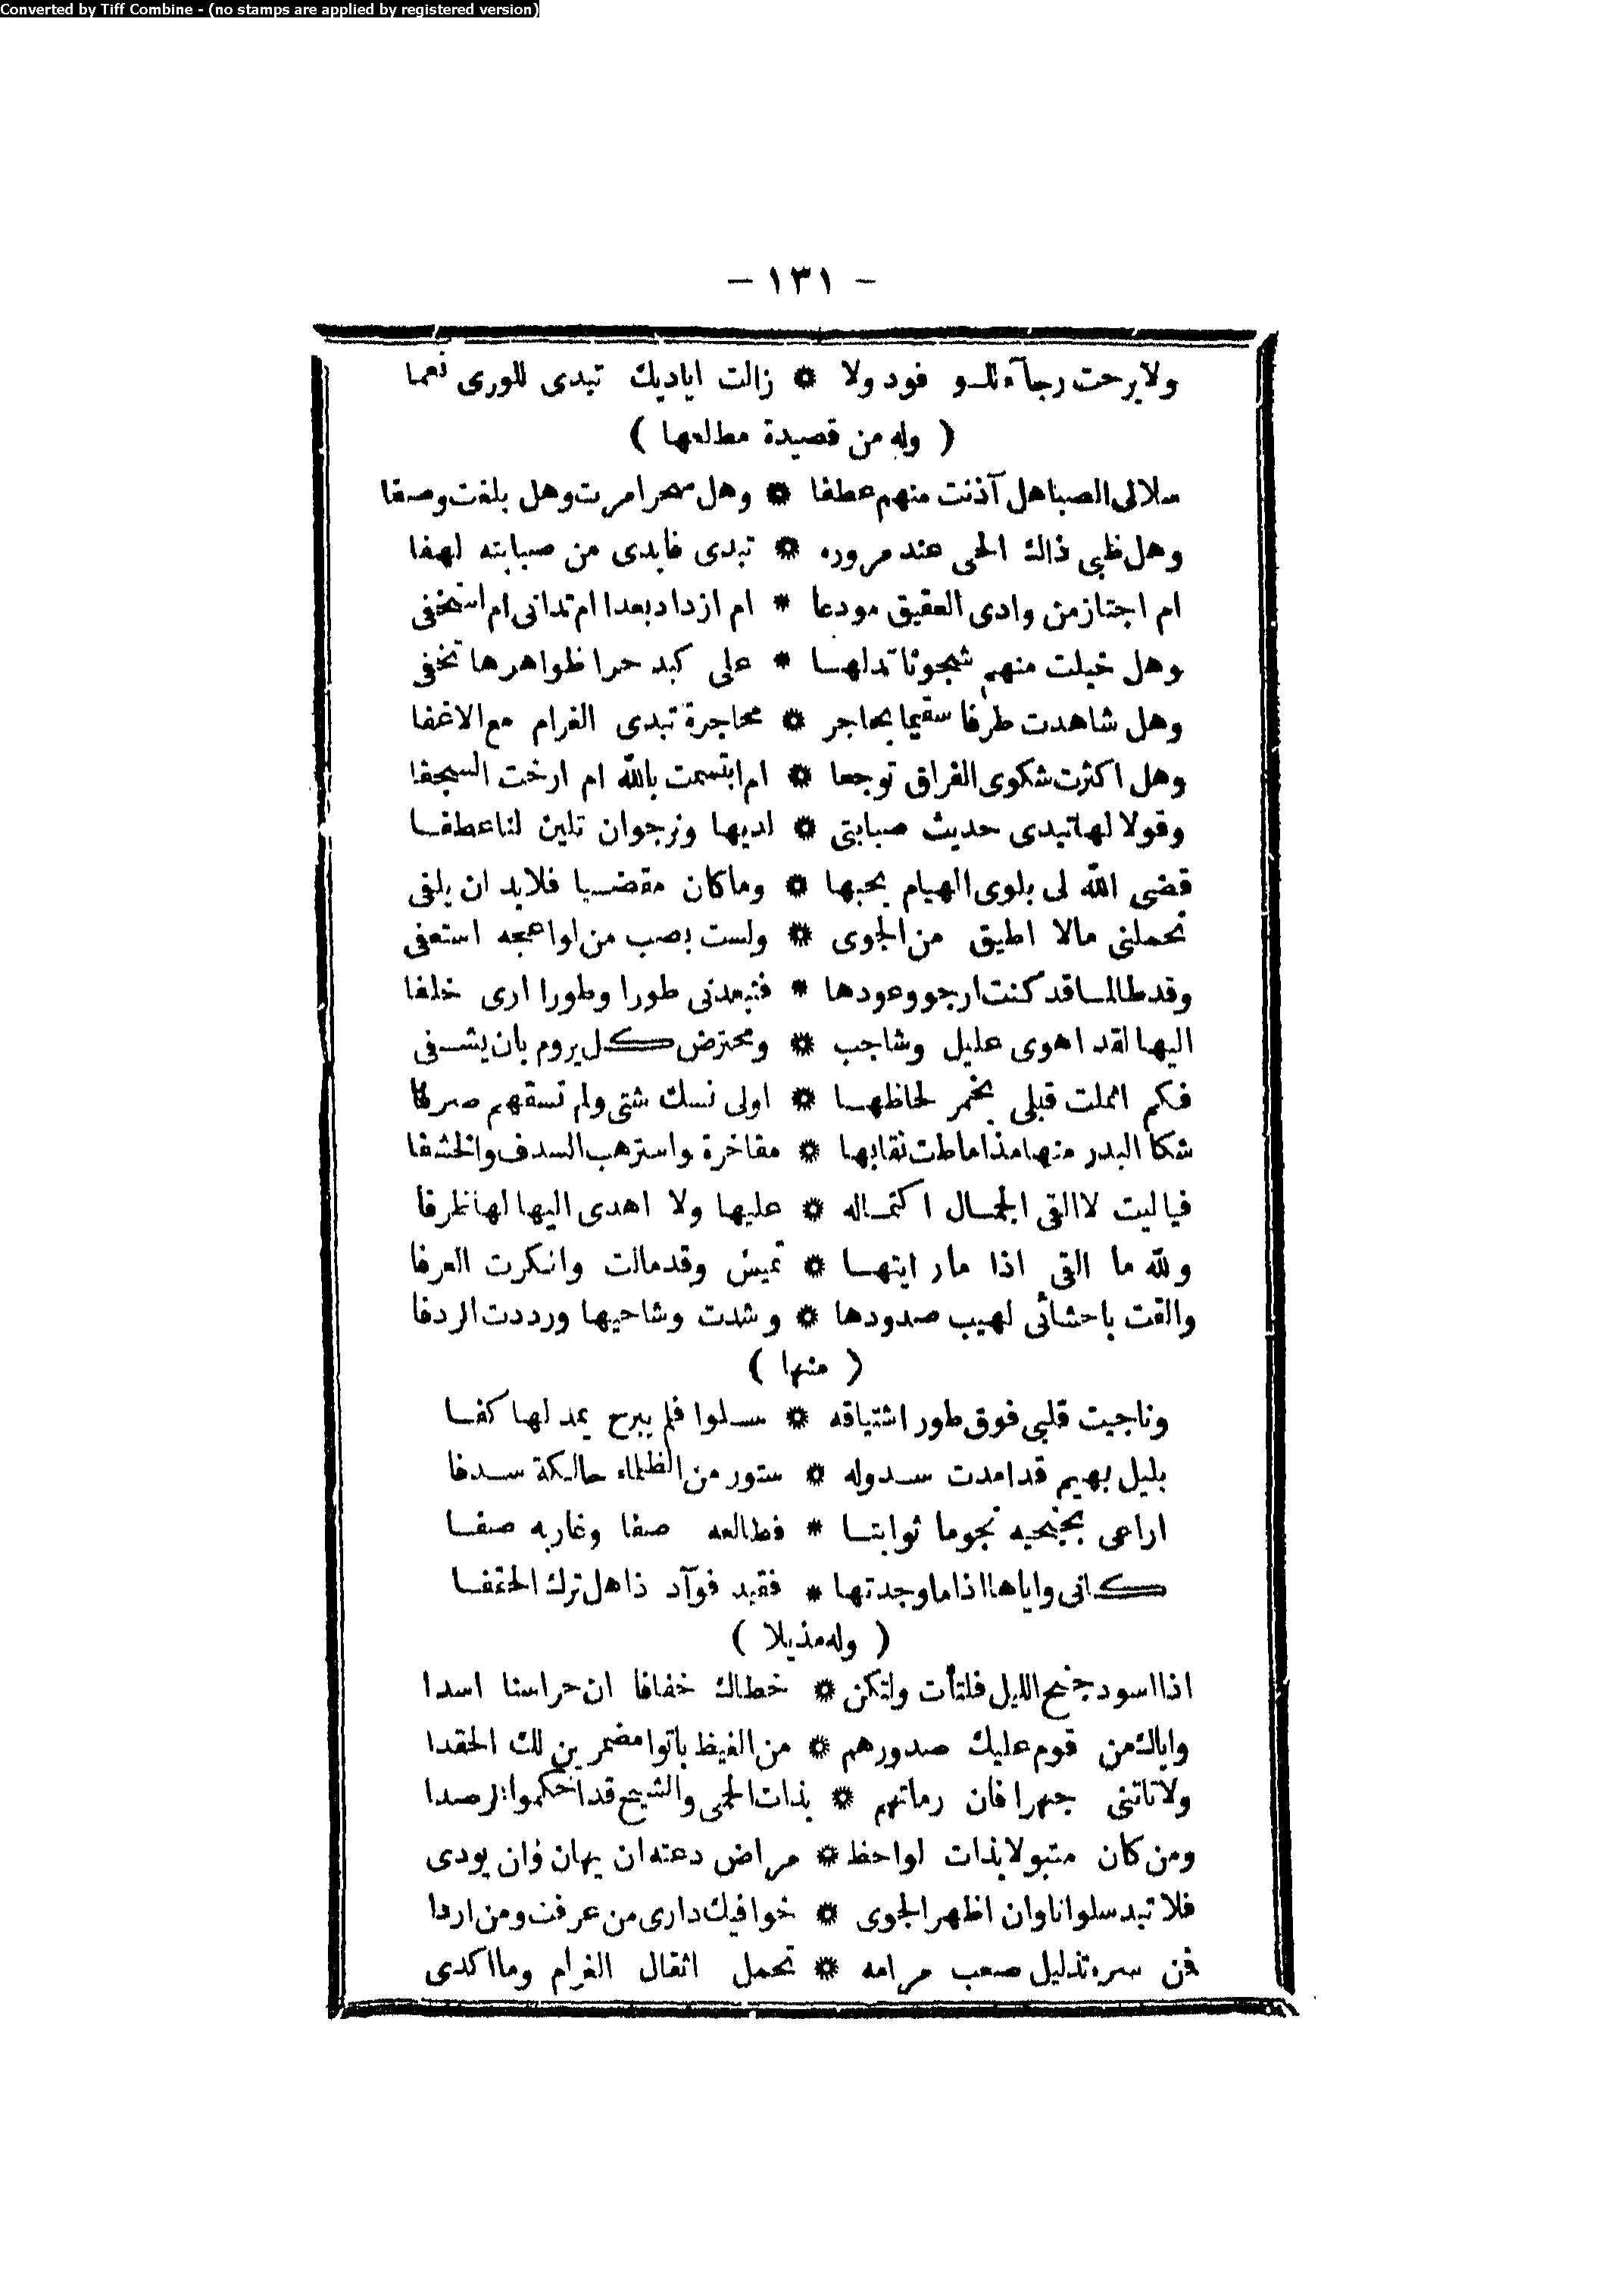 Converted by Tiff Combine - (no stamps are applied by registered version)
— ١٣١ —
ولا برحت رجآء تلـو فود ولا * زالت اياديك تبدى للورى نعما
( وله من قصيدة مطلعها )
سلالى الصبا هل آذنت منهم عطفا * وهل سحرا مرت وهل بلغت وصفا
وهل ظبى ذاك الحمى عند مروره * تبدى فابدى من صبابته لهفا
ام اجتاز من وادى العقيق مودعا * ام ازداد بعدا ام تدانى ام استخفى
وهل خيلت منهم شجونا تدلهـا * على كبد حرا ظواهرها تخفى
وهل شاهدت طرفا سقيما بحاجر * محاجرة تبدى الغرام مع الاغفا
وهل اكثرت شكوى الفراق توجعا * ام ابتسمت بالله ام ارخت السجفا
وقولا لها تبدى حديث صبابتى * لديها ونرجوان تلين لنا عطفـا
قضى الله لى بلوى الهيام بحبها * وما كان مقضـيا فلابد ان يلفى
تحملنى مالا اطيق من الجوى * ولست بصب من لواعجه استعفى
وقد طالمـا قد كنت ارجو وعودها * فتبعدنى طورا وطورا ارى خلفا
اليها لقد اهوى عليل وشاجب * ومحترض كـل يروم بان يشـفى
فكم اثملت قبلى بخمر لحاظهـا * اولى نسك شتى ولم تسقهم صرفا
شكا البدر منها مذ اماطت نقابها * مفاخرة واسترهب السدف والخشفا
فياليت لا القى الجمـال اكتمـاله * عليها ولا اهدى اليها لها ظرفا
ولله ما القى اذا مار ايتهـا * تميس وقد مالت وانكرت العرفا
والقت باحشائى لهيب صدودها * وشدت وشاحيها ورددت الردفا
( منها )
وناجيت قلبى فوق طور اشتياقه * سـلوا فلم يبرح يمد لها كفـا
بليل بهيم قد امدت سـدوله * ستور من الظلماء حالكة سـدفا
اراعى بجنحيه نجوما ثوابتـا * فطالعه صفا وغاربه صفـا
كـانى واياها اذا ما وجدتها * فقيد فوآد ذاهل ترك الحتفـا
( وله مذيلا )
اذا اسود جنح الليل فلتأت ولتكن * خطاك خفافا ان حراسنا اسدا
واياك من قوم عليك صدورهم * من الغيظ باتوا مضمرين لك الحقدا
ولا تاتنى جهرا فان رماتهم * بذات الحمى والشيح قد احكموا الرصدا
ومن كان متبولا بذات لواحظ * مراض دعته ان يهان وان يودى
فلا تبد سلوانا وان اظهر الجوى * خوافيك دارى من عرفت ومن اردا
فمن سره تذليل صعب مرامه * تحمل اثقال الغرام وما اكدى